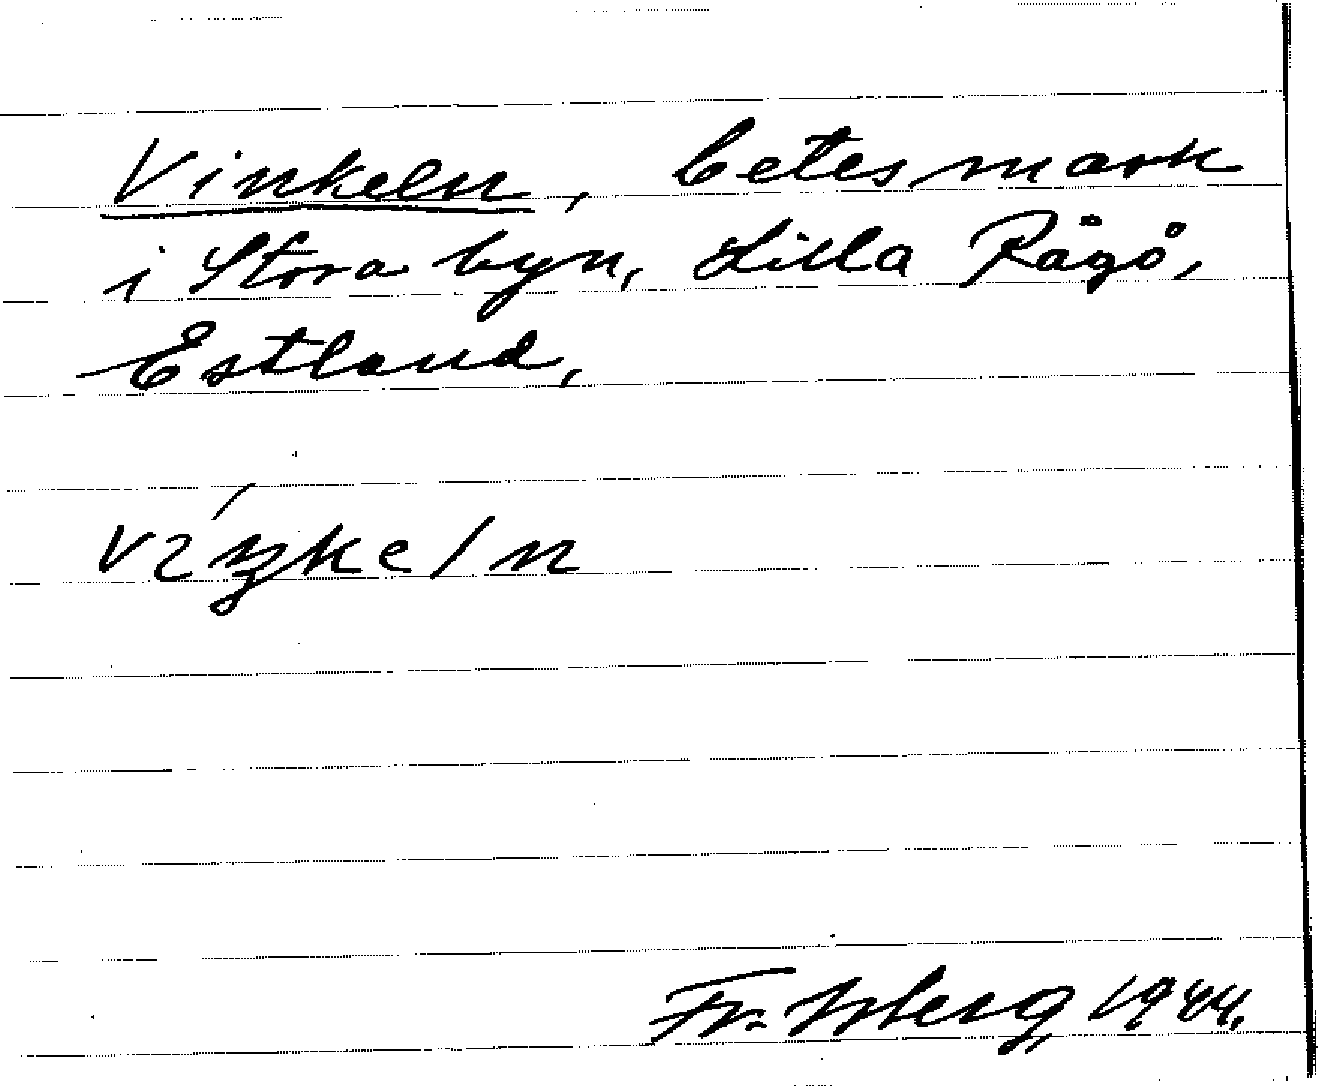 Vinkeln, betesmark
i Stora byn, Lilla Rågö,
Estland,
víŋkeln
Fr. Isberg, 1944.